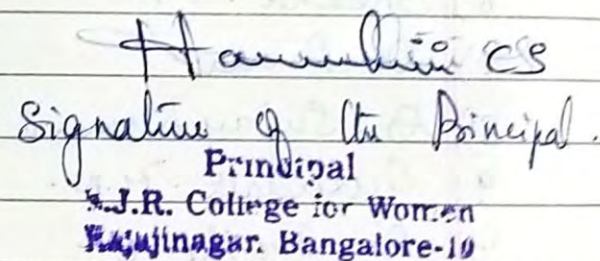 CS
Signature of the Principal.
Principal
J.R. College for Women
Rajajinagar. Bangalore-10